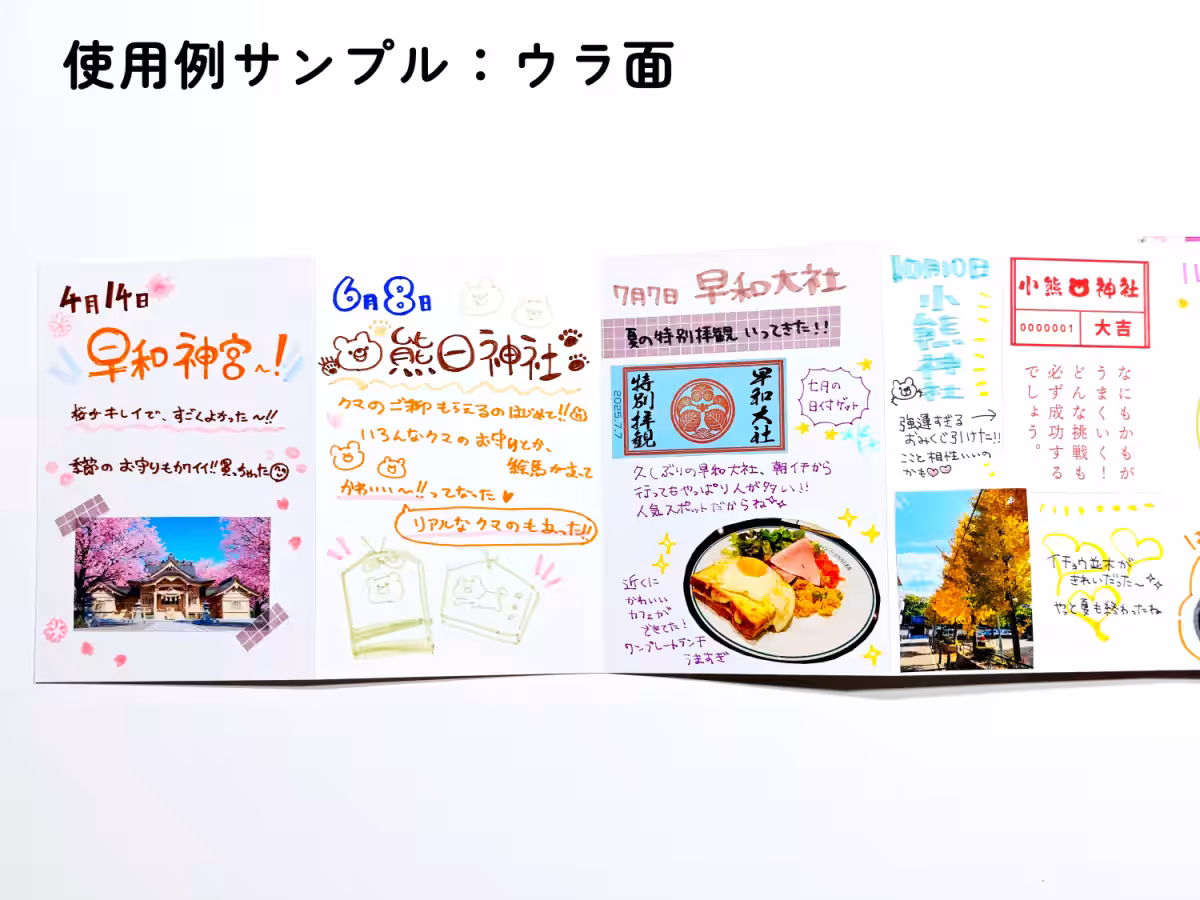 使用例サンプル：ウラ面
4月14日
早和神宮〜！
桜がキレイで、すごくよかった〜!!
季節のお守りもカワイイ!!買っちゃった
6月8日
熊日神社
クマのご朱印もらえるのはじめて!!
いろんなクマのお守りとか、
絵馬があって
かわいい〜!!ってなった
リアルなクマのもあった!!
7月7日 早和大社
夏の特別拝観 いってきた!!
早和大社
特別拝観
2025.7.7
七月の
日付ゲット
久しぶりの早和大社、朝イチから
行ってもやっぱり人が多い!!
人気スポットだからね
近くに
かわいい
カフェが
できてた!
ワンプレートランチ
うますぎ
10月10日
小熊神社
強運すぎる
おみくじ引けた!!
ここと相性いいの
かも
小熊神社
0000001
大吉
なにもかもが
うまくいく！
どんな挑戦も
必ず成功する
でしょう。
イチョウ並木が
きれいだった〜
やっと夏も終わったね